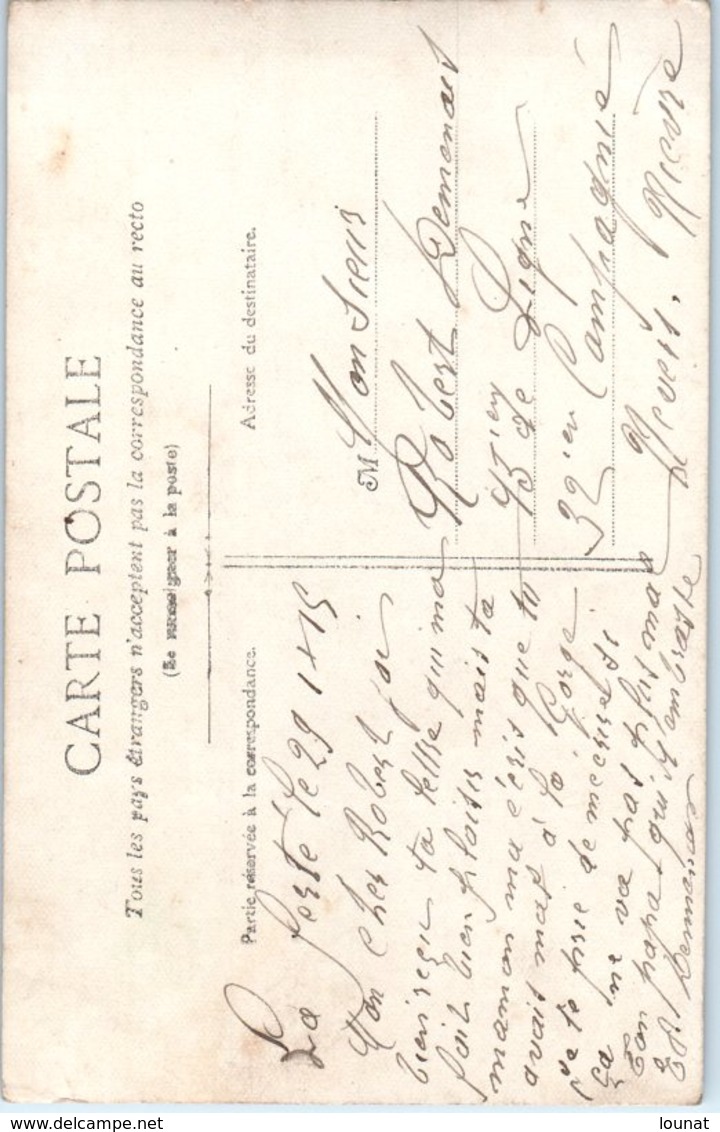 CARTE POSTALE
Tous les pays étrangers n'acceptent pas la correspondance au recto
(Se renseigner à la poste)
Partie réservée à la correspondance.
Adresse du destinataire.
La ferté le 29 1 15
Mon cher Robert jai
bien reçu ta lettre qui ma
fait bien plaisir mais ta
maman ma écris que tu
avais mal à la Gorge
je te prie de mécrire si
ça ne va pas plus mal
Ton papa qui t embrasse
M Monsieur
Robert
de Ligne
32 ien Campagnie
Nevers. Nièvre
lounat